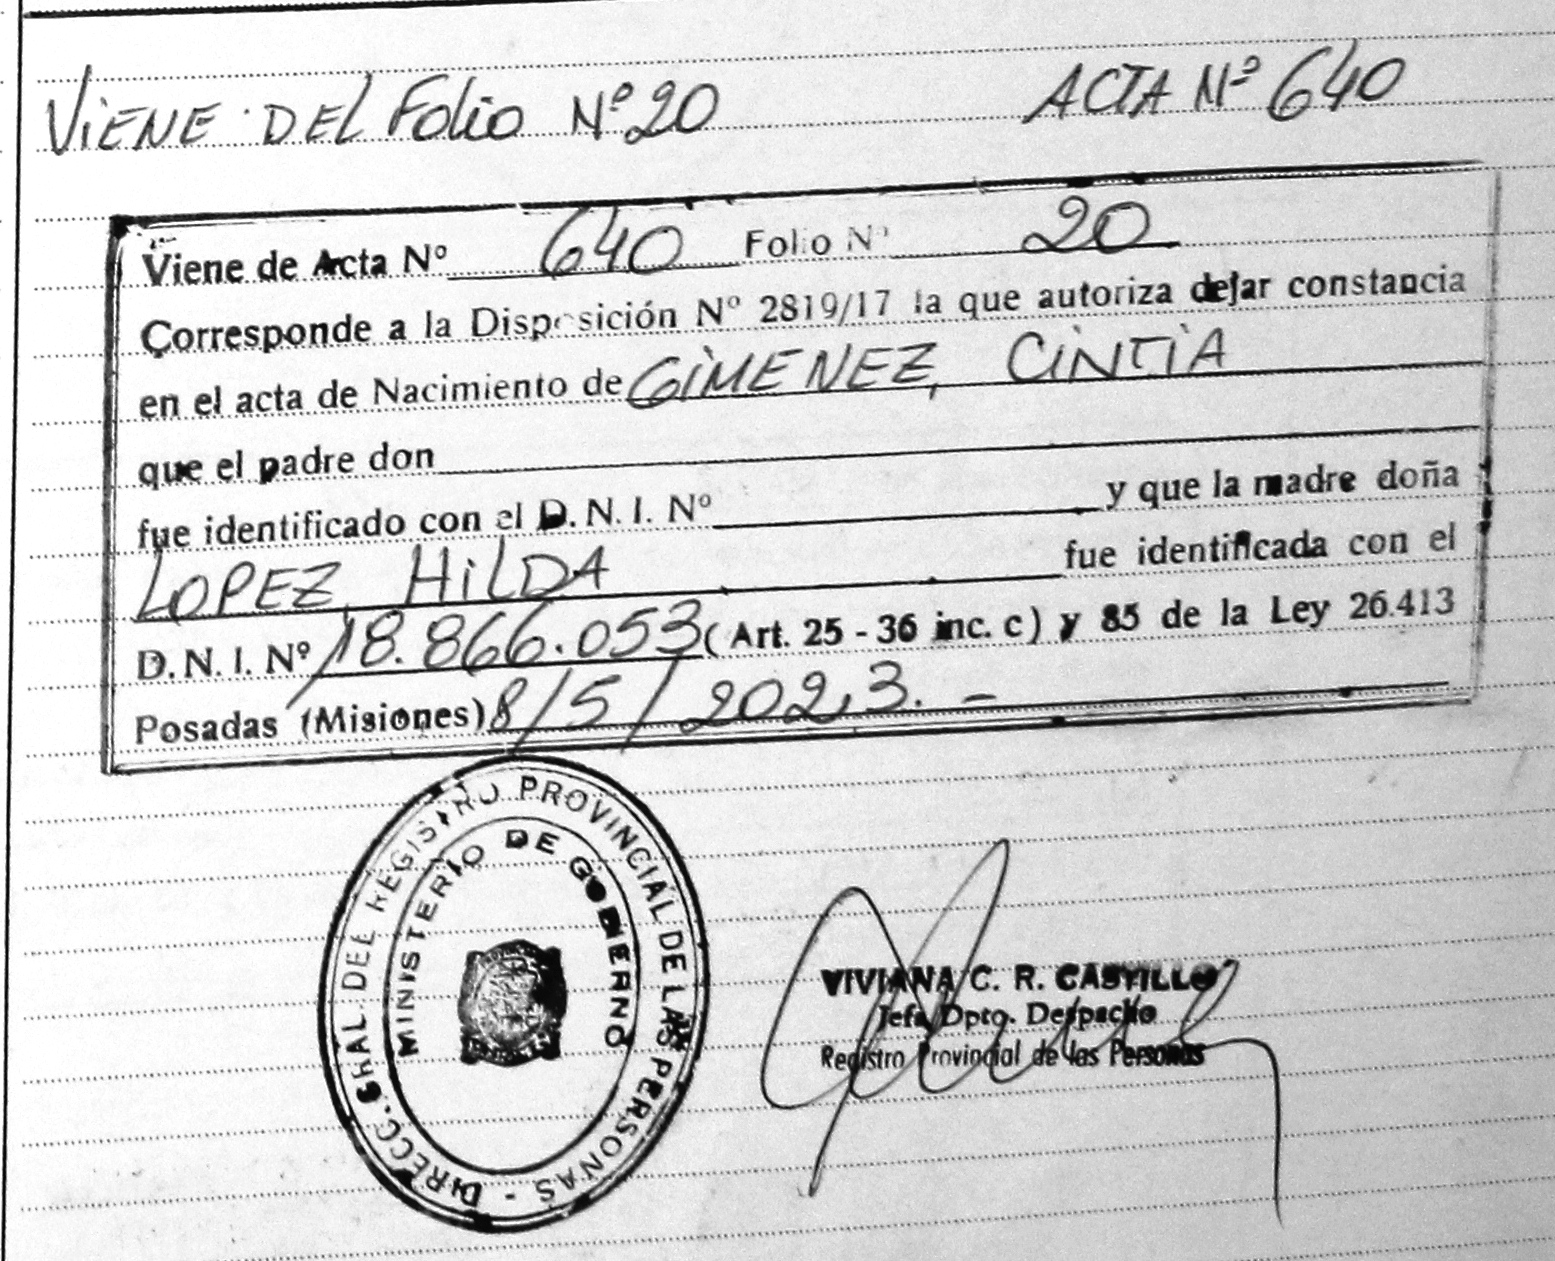 VIENE DEL Folio Nº 20 ACTA Nº 640
Viene de Acta Nº 640 Folio Nº 20
Corresponde a la Disposición Nº 2819/17 la que autoriza dejar constancia
en el acta de Nacimiento de GIMENEZ, CINTIA
que el padre don
fue identificado con el D.N.I. Nº y que la madre doña
LOPEZ, HILDA fue identificada con el
D.N.I. Nº 18.866.053 (Art. 25 - 36 inc. c) y 85 de la Ley 26.413
Posadas (Misiones) 8/5/2023.-
DIRECC. GRAL. DEL REGISTRO PROVINCIAL DE LAS PERSONAS -
MINISTERIO DE GOBIERNO
VIVIANA C. R. CASTILLO
Jefa Dpto. Despacho
Registro Provincial de las Personas